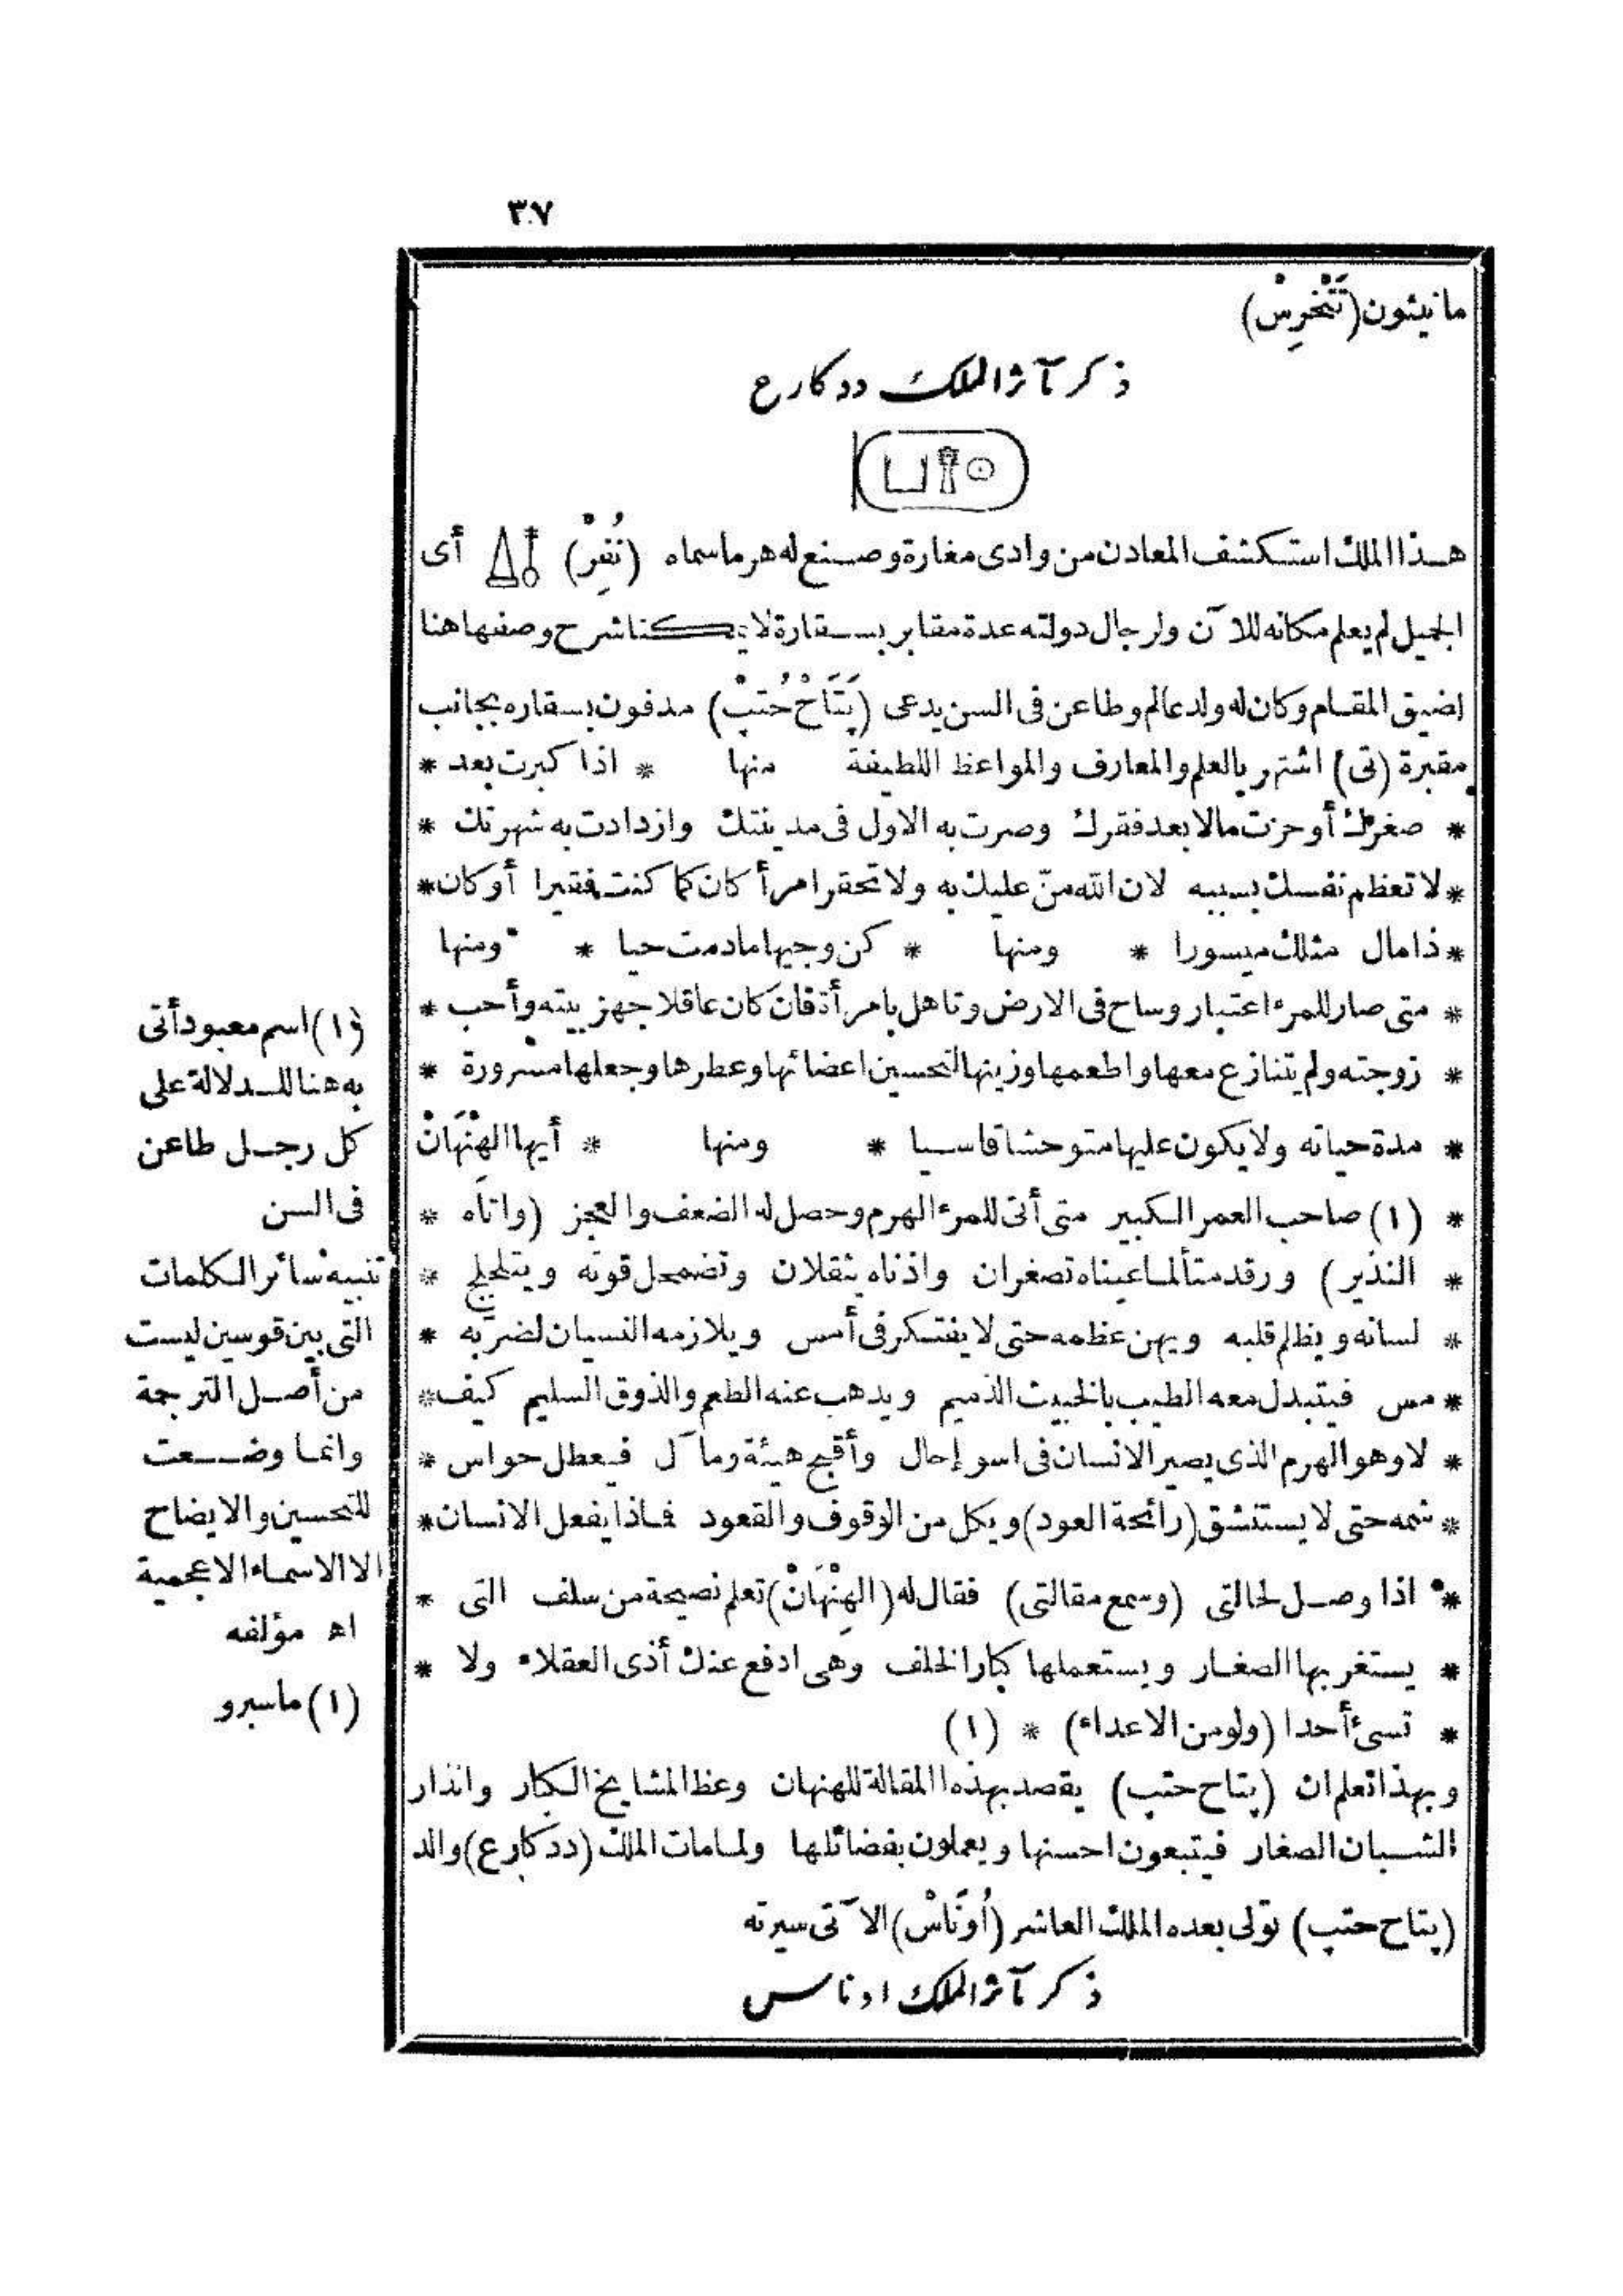 ٣٧
مانيثون (تَنْخرِسْ)
ذكر مآثر الملك ددكارع
هذا الملك استكشف المعادن من وادى مغارة وصنع له هرما سماه (نُفِرْ) أى
الجميل لم يعلم مكانه للآن ولرجال دولته عدة مقابر بسقارة لا يمكننا شرح وصفها هنا
لضيق المقام وكان له ولد عالم وطاعن فى السن يدعى (پَتَاحْ حُتپْ) مدفون بسقاره بجانب
مقبرة (تى) اشتهر بالعلم والمعارف والمواعظ اللطيفة منها * اذا كبرت بعد *
* صغرك أو حزت مالا بعد فقرك وصرت به الاول فى مدينتك وازدادت به شهرتك *
* لا تعظم نفسك بسببه لان الله منّ عليك به ولا تحقر امرأ كان كما كنت فقيرا أو كان *
* ذا مال مثلك ميسورا * ومنها * كن وجيها ما دمت حيا * ومنها
* متى صار للمرء اعتبار وساح فى الارض وتاهل بامرأة فان كان عاقلا جهز بيته وأحب *
* زوجته ولم يتنازع معها واطعمها وزينها لتحسين اعضائها وعطرها وجعلها مسرورة *
* مدة حياته ولا يكون عليها متوحشا قاسيا * ومنها * أيها الهِنْهَانْ
* (١) صاحب العمر الكبير متى أتى للمرء الهرم وحصل له الضعف والعجز (واتاه *
* النذير) ورقد متألما عيناه تصغران واذناه يثقلان وتضمحل قوته ويتلجلج *
* لسانه ويظلم قلبه ويهن عظمه حتى لا يفتكر فى أمس ويلازمه النسيان لضر به *
* مس فيتبدل معه الطيب بالخبيث الذميم ويذهب عنه الطعم والذوق السليم كيف *
* لا وهو الهرم الذى يصير الانسان فى اسوإ حال وأقبح هيئة ومآل فيعطل حواس *
* شمه حتى لا يستنشق (رائحة العود) ويكل من الوقوف والقعود فاذا يفعل الانسان *
* اذا وصل لحالتى (وسمع مقالتى) فقال له (الهِنْهَانْ) تعلم نصيحة من سلف التى *
* يستغربها الصغار ويستعملها كبار الخلف وهى ادفع عنك أذى العقلاء ولا *
* تسئ أحدا (ولو من الاعداء) * (١)
وبهذا تعلم ان (پتاح حتپ) يقصد بهذه المقالة للهنهان وعظ المشايخ الكبار وانذار
الشبان الصغار فيتبعون احسنها ويعملون بفضائلها ولما مات الملك (ددكارع) والد
(پتاح حتپ) تولى بعده الملك العاشر (أُونَاسْ) الآتى سيرته
ذكر مآثر الملك اوناس
(١) اسم معبود أتى
به هنا للدلالة على
كل رجل طاعن
فى السن
تنبيه سائر الكلمات
التى بين قوسين ليست
من أصل الترجمة
وانما وضعت
للتحسين والايضاح
الا الاسماء الاعجمية
اه مؤلفه
(١) ماسبرو